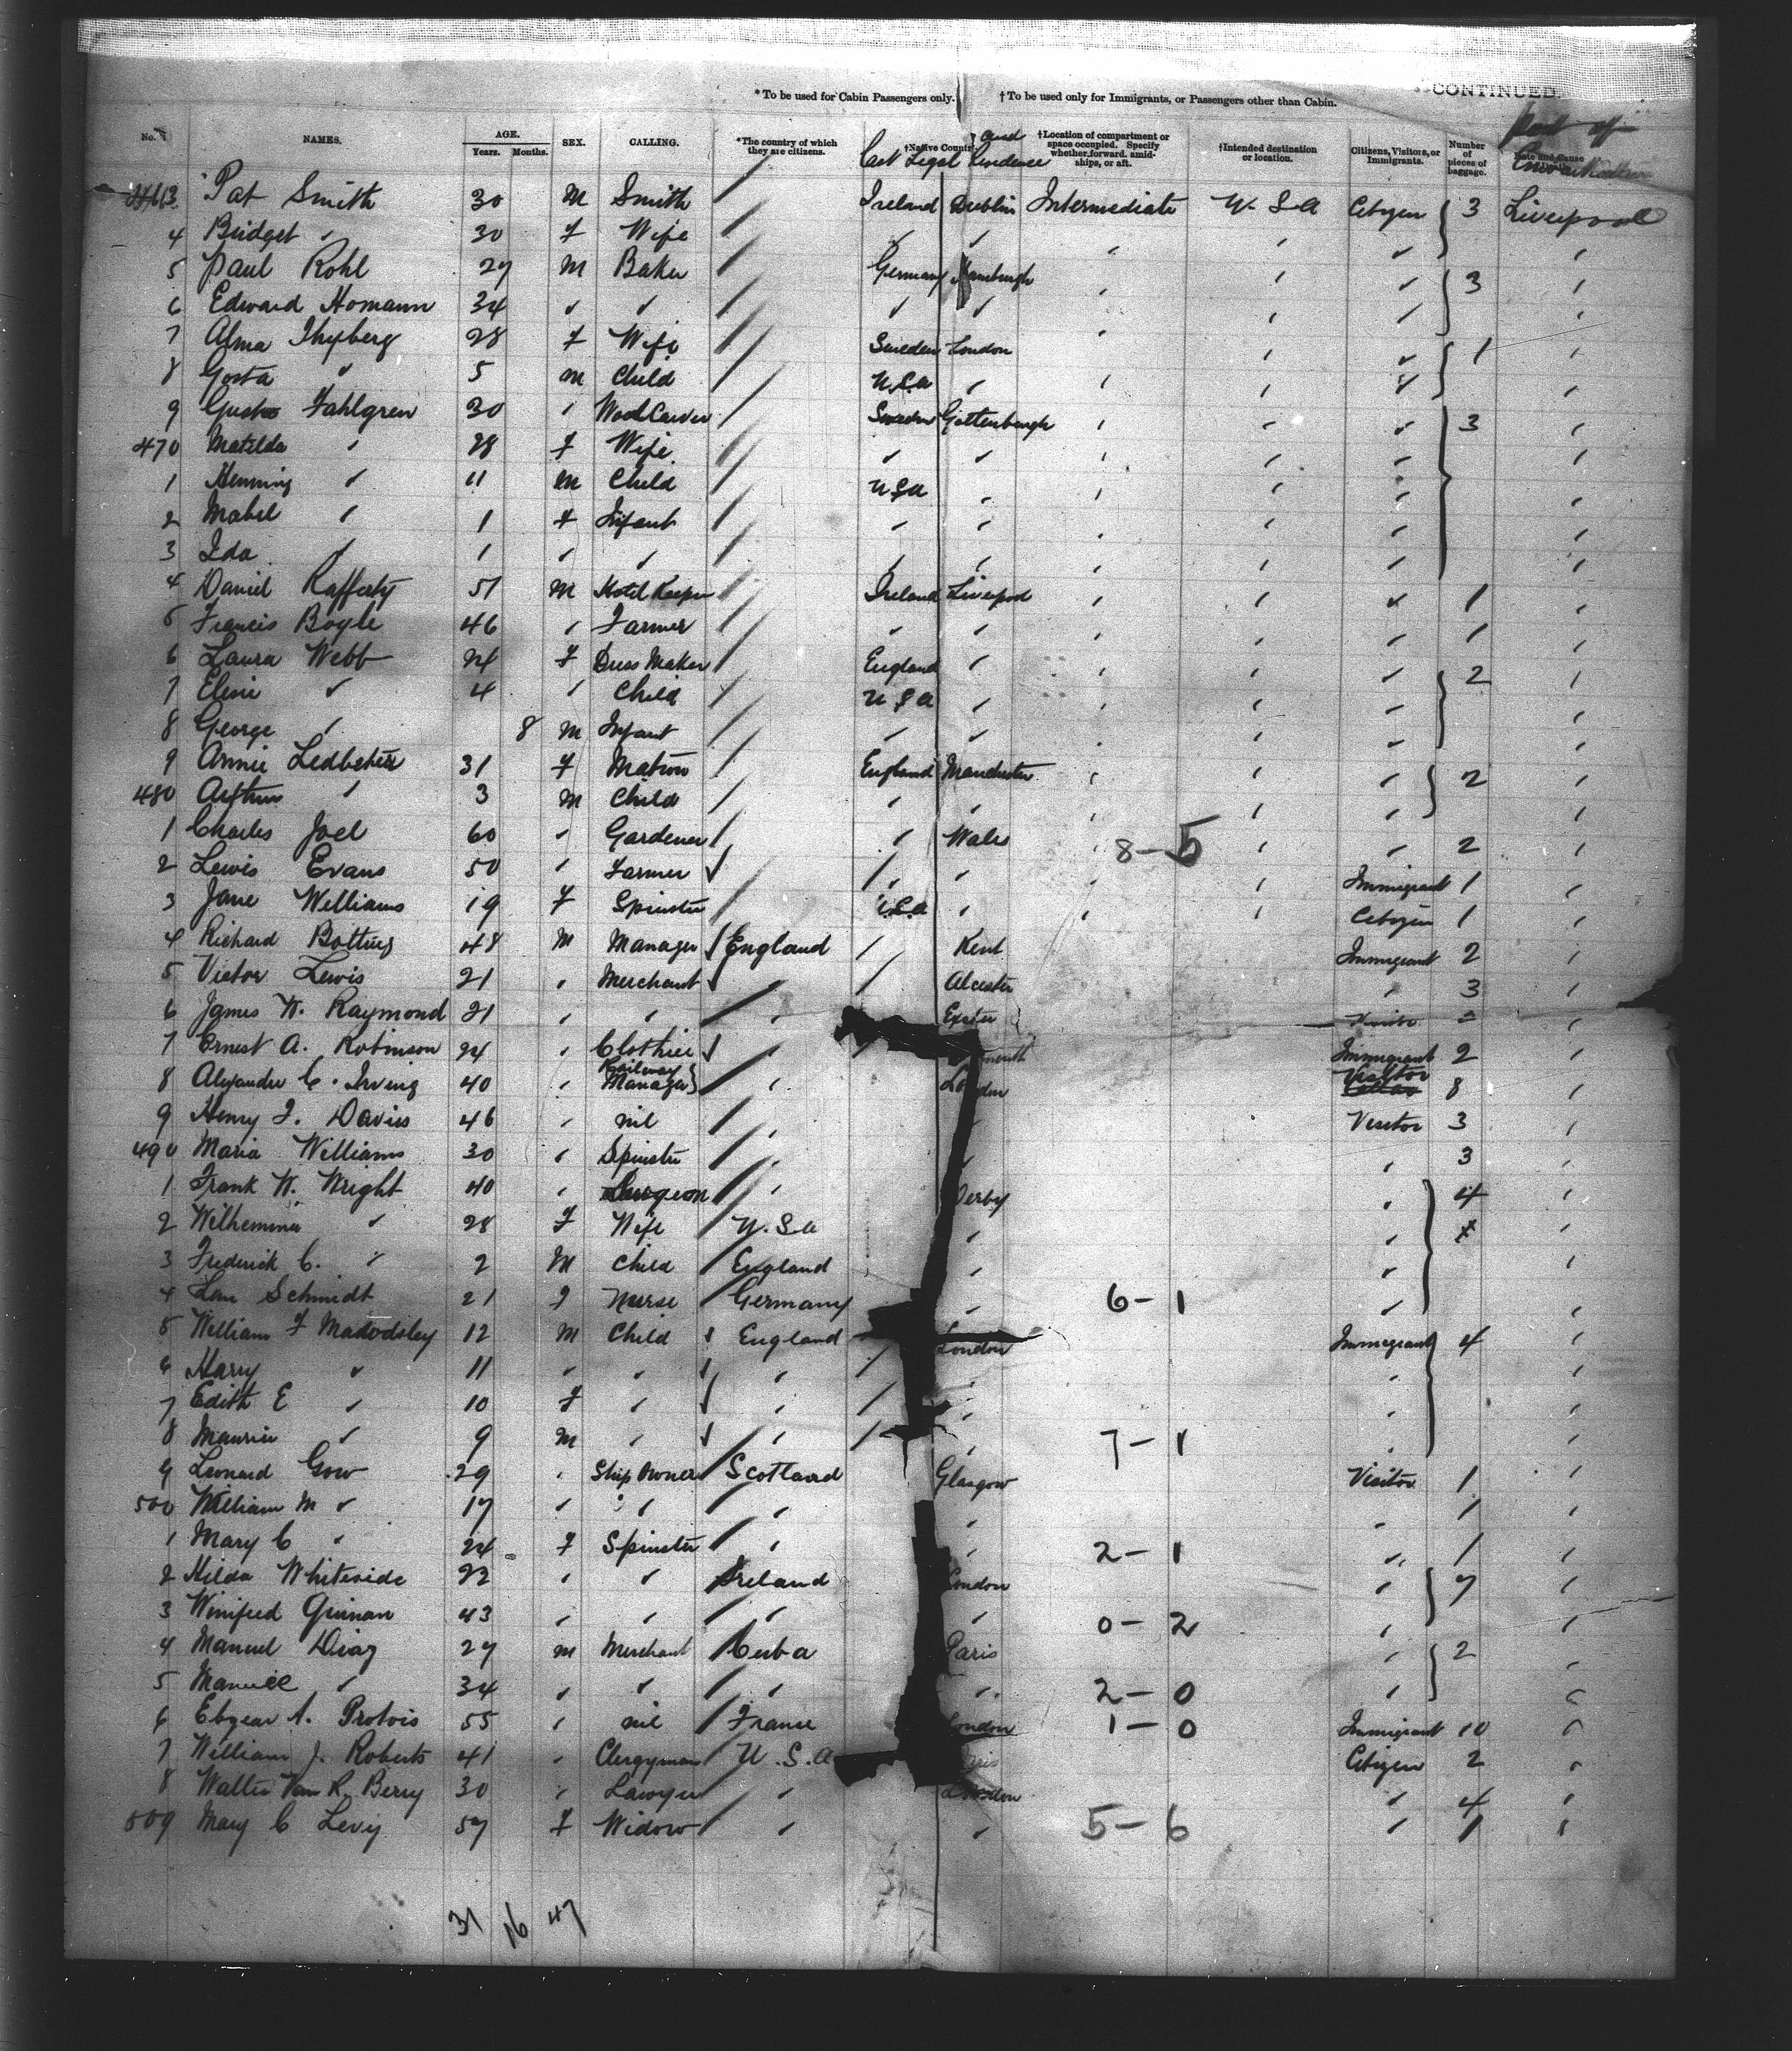 CONTINUED.
* To be used for Cabin Passengers only. † To be used only for Immigrants, or Passengers other than Cabin.
No. NAMES. AGE. Years. Months. SEX. CALLING. *The country of which they are citizens. †Native Country and Last Legal Residence †Location of compartment or space occupied. Specify whether forward, amidships, or aft. †Intended destination or location. Citizens, Visitors, or Immigrants. Number of pieces of baggage. Port of Embarkation
463 Pat Smith 30 M Smith / Ireland Dublin Intermediate U.S.A Citizen 3 Liverpool
4 Bridget " 30 F Wife / " " " " " "
5 Paul Rohl 27 M Baker / Germany Hamburgh " " " 3 "
6 Edward Homann 34 " " / " " " " " "
7 Alma Thyberg 28 F Wife / Sweden London " " " 1 "
8 Gosta " 5 M Child / U.S.a " " " " "
9 Gust Fahlgren 30 " Wood Carver / Sweden Gottenburgh " " " 3 "
470 Matilda " 28 F Wife / " " " " " "
1 Henning " 11 M Child / U.S.a " " " " "
2 Mabel " 1 F Infant / " " " " " "
3 Ida " 1 " " / " " " " " "
4 Daniel Rafferty 51 M Hotel Keeper / Ireland Liverpool " " " 1 "
5 Francis Boyle 46 " Farmer / " " " " " 1 "
6 Laura Webb 24 F Dress Maker / England " " " " 2 "
7 Elsie " 4 " Child / U.S.a " " " " "
8 George " 8 M Infant / " " " " " "
9 Annie Ledbetter 31 F Matron / England Manchester " " " 2 "
480 Arthur " 3 M Child / " " " " " "
1 Charles Joel 60 " Gardener / " Wales 8-5 " " 2 "
2 Lewis Evans 50 " Farmer / " " " " Immigrant 1 "
3 Jane Williams 19 F Spinster / U.S.a " " " Citizen 1 "
4 Richard Botting 48 M Manager England / Kent Immigrant 2 "
5 Victor Lewis 21 " Merchant " / Alcester " 3 "
6 James W. Raymond 21 " " / " Exeter "
7 Ernest A. Robinson 24 " Clothier " / Immigrant 2 "
8 Alexander C. Irving 40 " Railway Manager " London Visitor 8 "
9 Henry J. Davies 46 " nil / " Visitor 3 "
490 Maria Williams 30 " Spinster / " " " 3 "
1 Frank W. Wright 40 " Surgeon / " Derby " 4 "
2 Wilhemina " 28 F Wife / U.S.a " " "
3 Frederick C. " 2 M Child / England " " "
4 Schmidt 21 F Nurse / Germany " 6-1 " "
5 William F 12 M Child England / London Immigrant 4 "
6 Harry " 11 " " " / " " "
7 Edith E " 10 F " " / " " "
8 Maurice " 9 M " " / " 7-1 " "
9 Leonard Gow 29 " Ship Owner / Scotland Glasgow Visitor 1 "
500 William M " 17 " " / " " " 1 "
1 Mary C " 24 F Spinster / " " 2-1 " 1 "
2 Hilda Whiteside 22 " " / Ireland London " 7 "
3 Winifred Guinan 43 " " / " " 0-2 " "
4 Manuel Diaz 27 M Merchant / Cuba Paris " 2 "
5 Manuel " 34 " " / " " 2-0 " "
6 55 " nil / France London 1-0 Immigrant 10 "
7 William J. Roberts 41 " Clergyman / U.S.A Paris Citizen 2 "
8 Walter Van R. Berry 30 " Lawyer / " London " 4 "
509 Mary C Levy 57 F Widow / " " 5-6 " 1 "
31 16 47